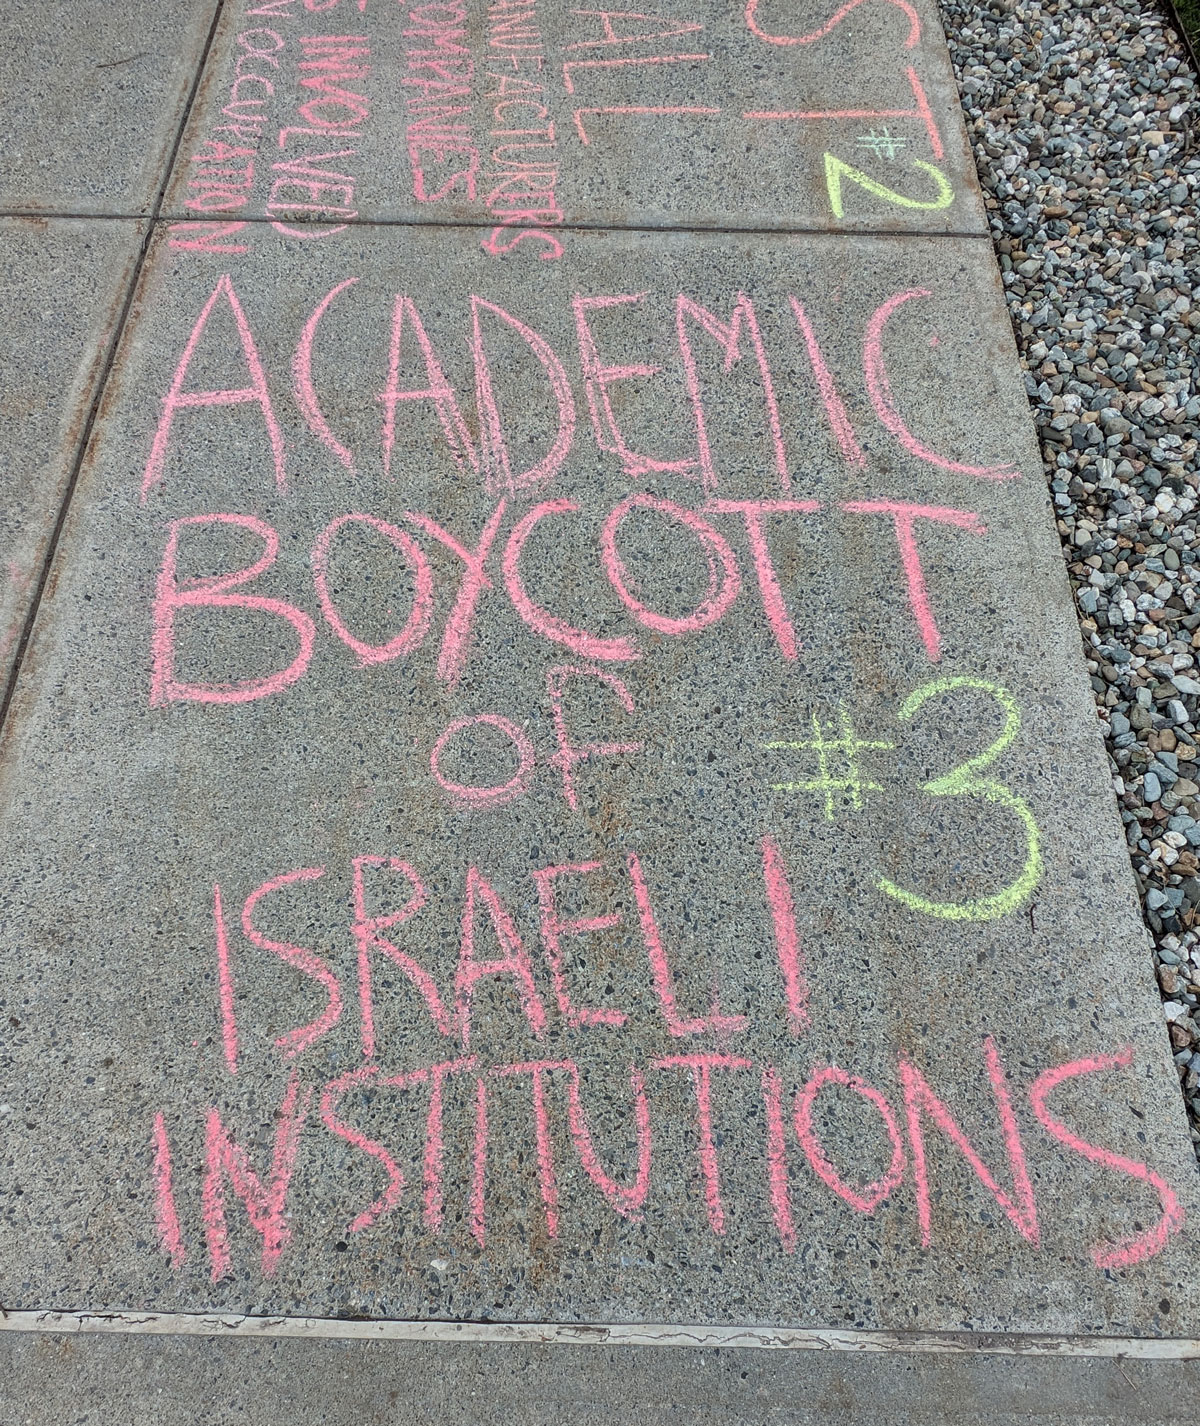 ST #2
ALL
ANUFACTURERS
COMPANIES
INVOLVED
N OCCUPATION
ACADEMIC
BOYCOTT
of
#3
ISRAELI
INSTITUTIONS